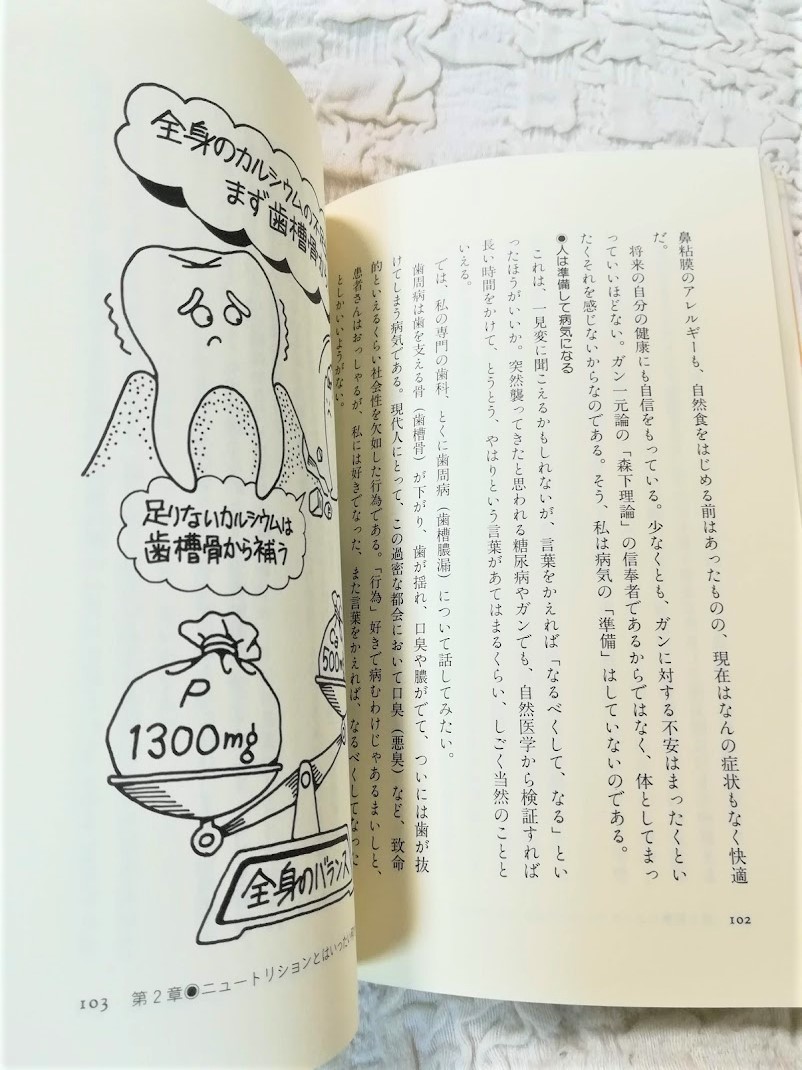 鼻粘膜のアレルギーも、自然食をはじめる前はあったものの、現在はなんの症状もなく快適
だ。
将来の自分の健康にも自信をもっている。少なくとも、ガンに対する不安はまったくとい
っていいほどない。ガン一元論の「森下理論」の信奉者であるからではなく、体としてまっ
たくそれを感じないからなのである。そう、私は病気の「準備」はしていないのである。
●人は準備して病気になる
これは、一見変に聞こえるかもしれないが、言葉をかえれば「なるべくして、なる」とい
ったほうがいいか。突然襲ってきたと思われる糖尿病やガンでも、自然医学から検証すれば
長い時間をかけて、とうとう、やはりという言葉があてはまるくらい、しごく当然のことと
いえる。
では、私の専門の歯科、とくに歯周病（歯槽膿漏）について話してみたい。
歯周病は歯を支える骨（歯槽骨）が下がり、歯が揺れ、口臭や膿がでて、ついには歯が抜
けてしまう病気である。現代人にとって、この過密な都会において口臭（悪臭）など、致命
的といえるくらい社会性を欠如した行為である。「行為」好きで病むわけじゃあるまいしと、
患者さんはおっしゃるが、私には好きでなった、また言葉をかえれば、なるべくしてなった
としかいいようがない。
102
全身のカルシウムの不
まず歯槽骨
足りないカルシウムは
歯槽骨から補う
P
1300mg
Ca
500m
全身のバランス
103 第2章●ニュートリションとはいったい